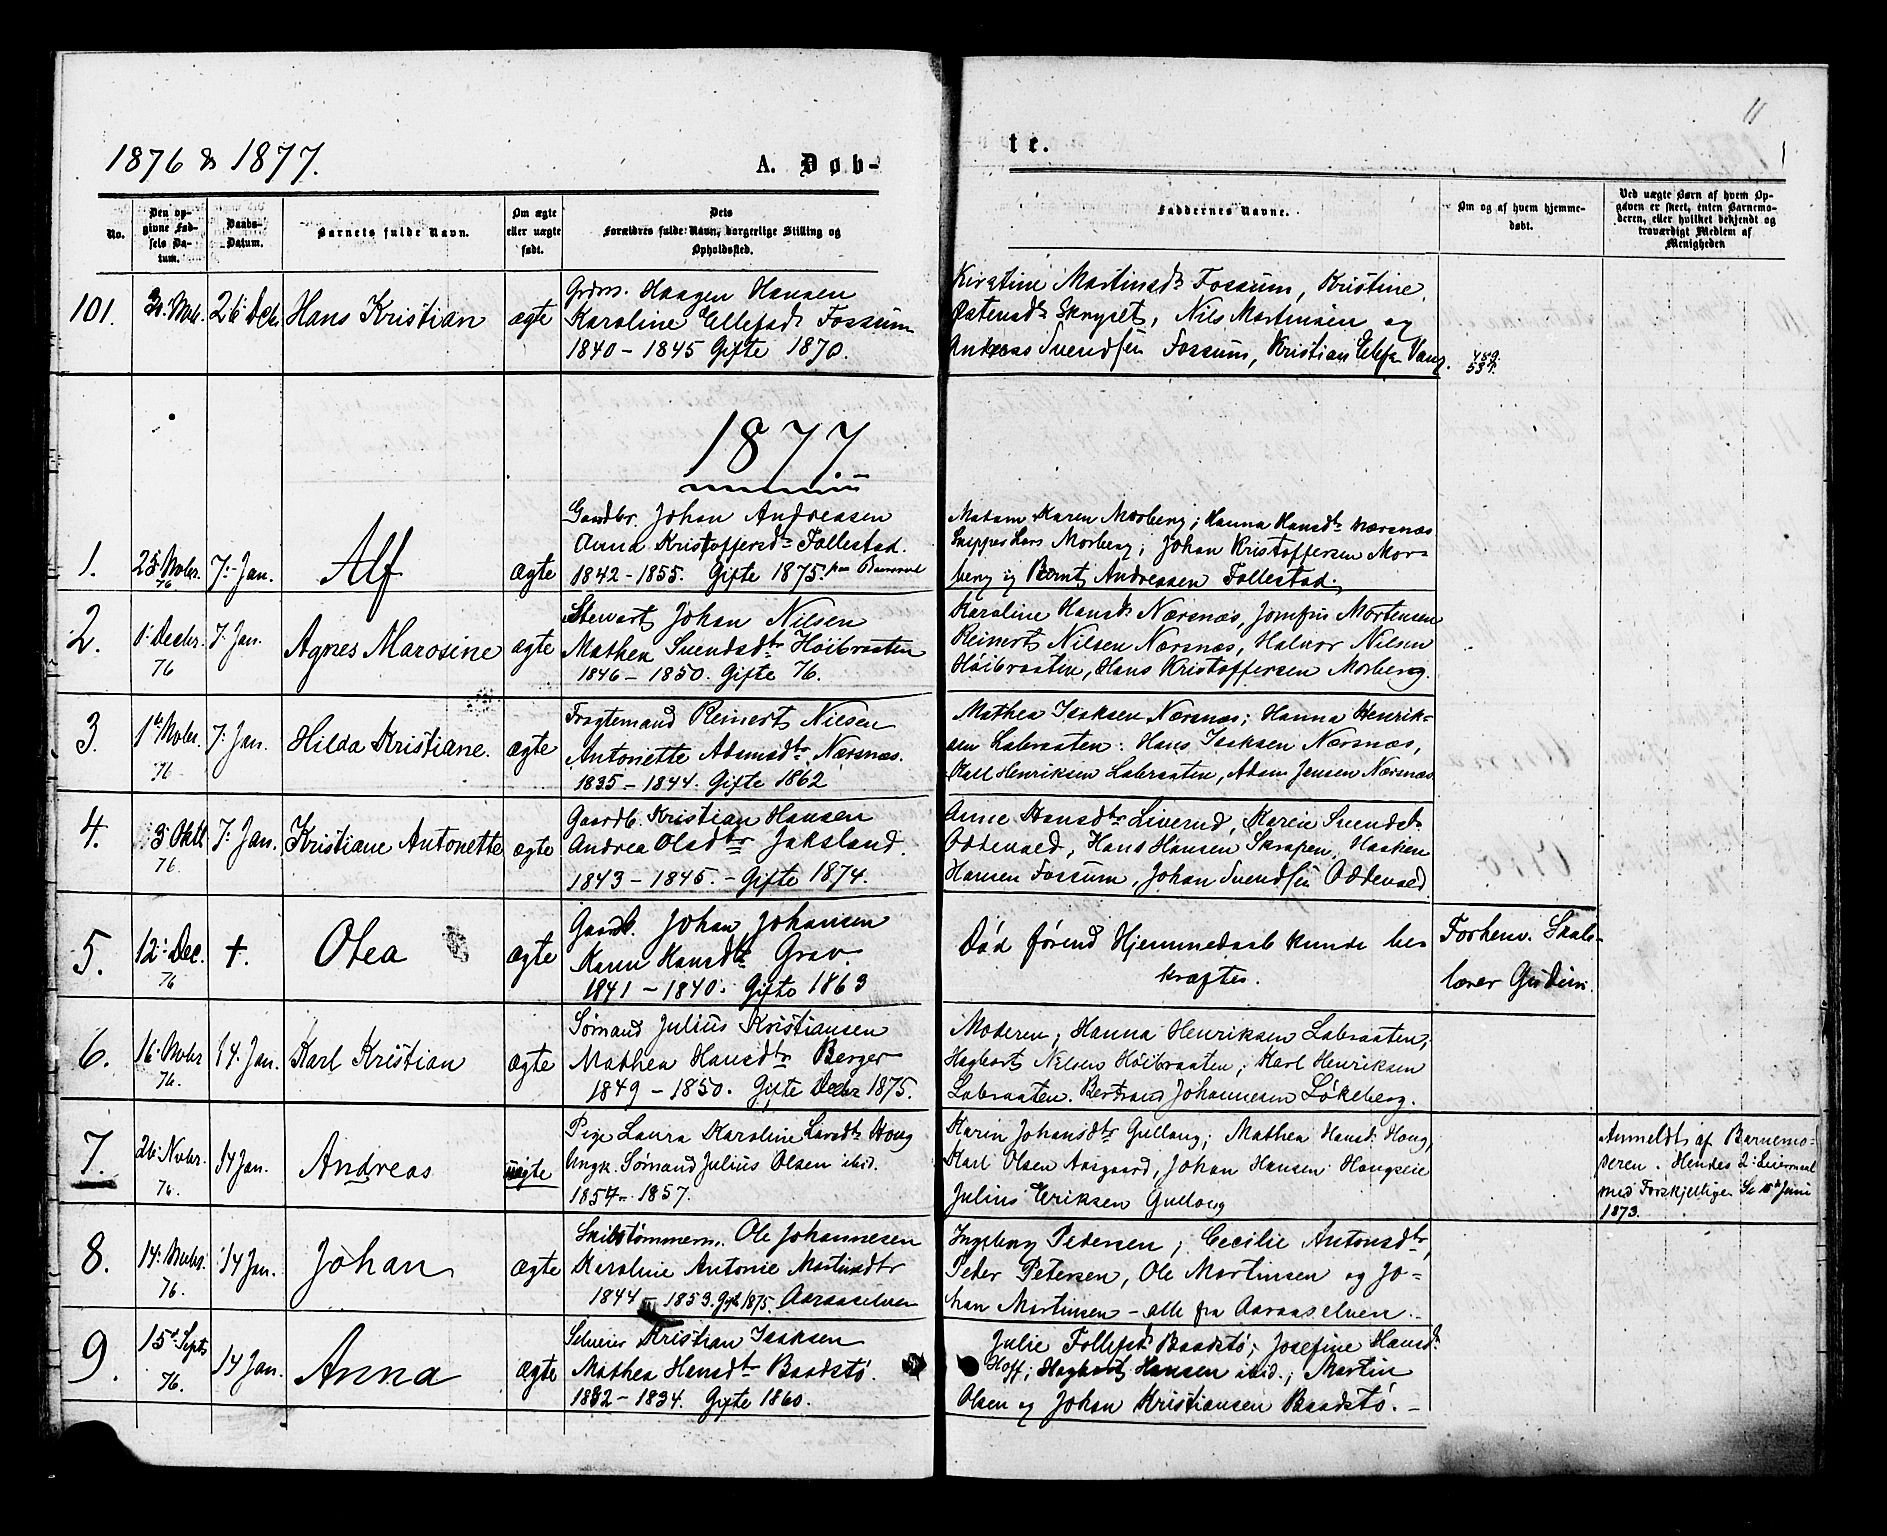 11
1876 & 1877.
A. Døb-
te.
No.
Den op-
givne Fød-
sels Da-
tum.
Daabs-
Datum.
Barnets fulde Navn.
Om ægte
eller uægte
født.
Dets
Forældres fulde Navn, borgerlige Stilling og
Opholdssted.
Faddernes Navne.
Om og af hvem hjemme-
døbt.
Ved uægte Børn af hvem Op-
gaven er skeet, enten Barnemo-
deren, eller hvilket bekjendt og
troværdigt Medlem af
Menigheden
101.
26 Decb.
Hans Kristian
ægte
Grdm. Haagen Hansen
Karoline Ellefsd. Fossum
1840 - 1845 Gifte 1870.
Kirstine Martinsdt Fossum, Kristine
Østensdt Skryset, Nils Martinsen og
Andreas Svendsen Fossum, Kristian Ellefs. Vang.
489.
537.
1877
1.
25 Novbr.
76
7 Jan.
Alf
ægte
Gaardbr. Johan Andreasen
Anna Kristoffersdt Follestad.
1842 - 1855. Gifte 1875.
Madam Karen Morberg; Hanna Hansdt Nærsnæs
Lars Morberg; Johan Kristoffersen Mor-
berg og Bernt Andreasen Follestad.
2.
Decbr.
76
7 Jan.
Agnes Marosine
ægte
Stewart Johan Nilsen
Mathea Svendsdtr Höibraaten
1846 - 1850. Gifte 76.
Karoline Hansdt Nærsnæs, Jomfru Mortensen
Reinert Nilsen Nærsnæs, Halvor Nilsen
Höibraaten, Hans Kristoffersen Morberg.
3.
Novbr.
76
7 Jan.
Hilda Kristiane.
ægte
Fragtemand Reinert Nilsen
Antonette Adamsdtr Nærsnæs.
1835 - 1844. Gifte 1862
Mathea Isaksen Nærsnæs; Hanna Henrik-
sen Labraaten: Hans Isaksen Nærsnæs,
Karl Henriksen Labraaten, Adam Jensen Nærsnæs
4.
3 Oktb
76.
7 Jan.
Kristiane Antonette
ægte
Gaardb. Kristian Hansen
Andrea Olsdtr Jaksland.
1843 - 1845. - Gifte 1874.
Anne Hansdtr Liverud, Karen Svendsdt.
Oddevald, Hans Hansen Skrapen, Haaken
Hansen Fossum, Johan Svendsen Oddevald
5.
12 Dec.
76
+.
Olea
ægte
Gaardb. Johan Johansen
Karen Hansdt Grav.
1841 - 1840. Gifte 1863
Død førend Hjemmedaab kunde be
kræftes.
Forhenv. Skole-
lærer
6.
16 Novbr
76.
14 Jan.
Karl Kristian
ægte
Sømand Julius Kristiansen
Mathea Hansdtr Berger
1849 - 1850. Gifte Decbr 1875.
Moderen; Hanna Henriksen Labraaten;
Hagbart Nilsen Höibraaten; Karl Henriksen
Labraaten. Bertrand Johannesen Løkeberg.
7.
26 Novbr.
76.
14 Jan.
Andreas
uægte
Pige Laura Karoline Larsdt Houg
Ungk. Sømand Julius Olsen ibid.
1854 - 1857.
Karin Johansdtr Gullaug; Mathea Hansdt. Houg;
Karl Olsen Aasgaard, Johan Hansen
Julius Eriksen Gullaug
Anmeldt af Barnemo-
deren. Hendes 2 Leiermaal
med Forskjellige. Juni
1873.
8.
14 Novbr.
76.
14 Jan.
Johan
ægte
Skibstømmerm. Ole Johannesen
Karoline Antonie Martinsdtr
1844 - 1853. Gift 1875. Aaraaselven
Ingeborg Pedersen; Cecilie Antonsdtr,
Peder Petersen, Ole Martinsen og Jo-
han Martinsen - alle fra Aaraaselven.
9.
15 Septb
76.
14 Jan.
Anna
ægte
Selveier Kristian Isaksen
Mathea Hansdtr Baadstø.
1832 - 1834. Gifte 1860.
Julie Follefsd Baadstø; Josefine Hansd.
Hoff; Hagbart Hansen ibid.; Martin
Olsen og Johan Kristiansen Baadstø. -